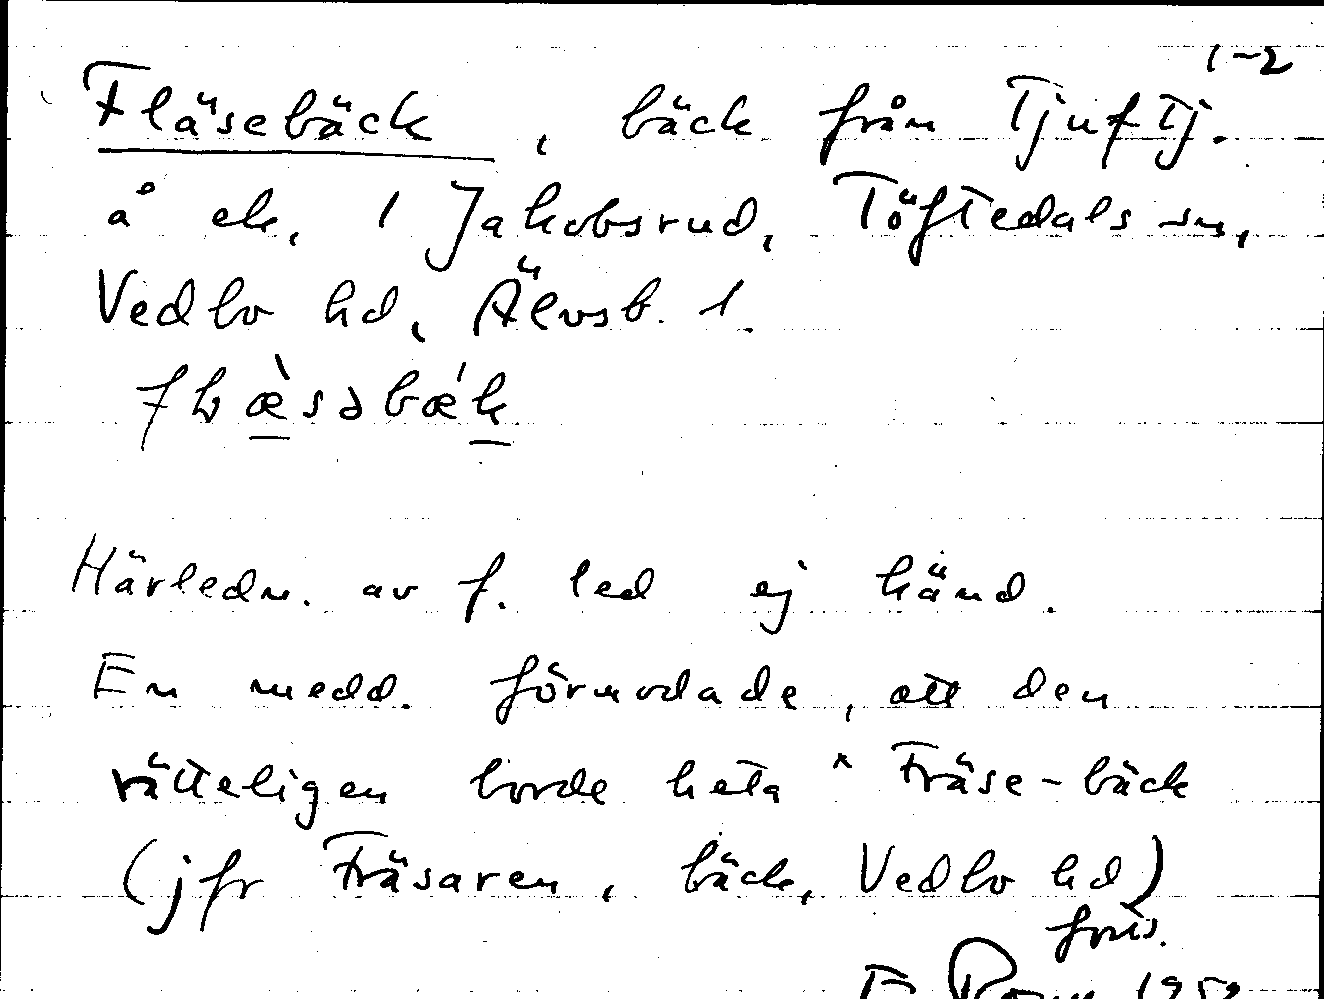 1-2
Fläsebäck, bäck från Tjuftj.
å ek. 1 Jakobsrud, Töftedals sn,
Vedbo hd, Älvsb. l.
Härledn. av f. led ej känd.
En medd. förmodade, att den
rätteligen borde heta * Fräse-bäck
(jfr Fräsaren, bäck, Vedbo hd)
forts.